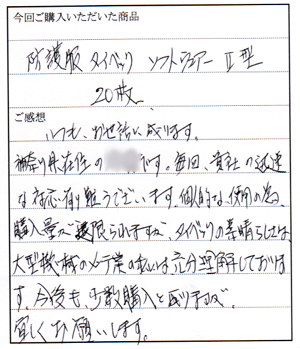 今回ご購入いただいた商品
防護服 タイベック ソフトウェアー Ⅱ型
20枚
ご感想
いつも、お世話に成ります。
神奈川県在住の です。毎回、貴社の迅速
な対応有り難うございます。個人的な使用の為、
購入量が限られますが、タイベックの素晴らしさは
大型機械のメンテ業の私には充分理解しておりま
す。今後も、少数購入と成りますが、
宜しくお願いします。